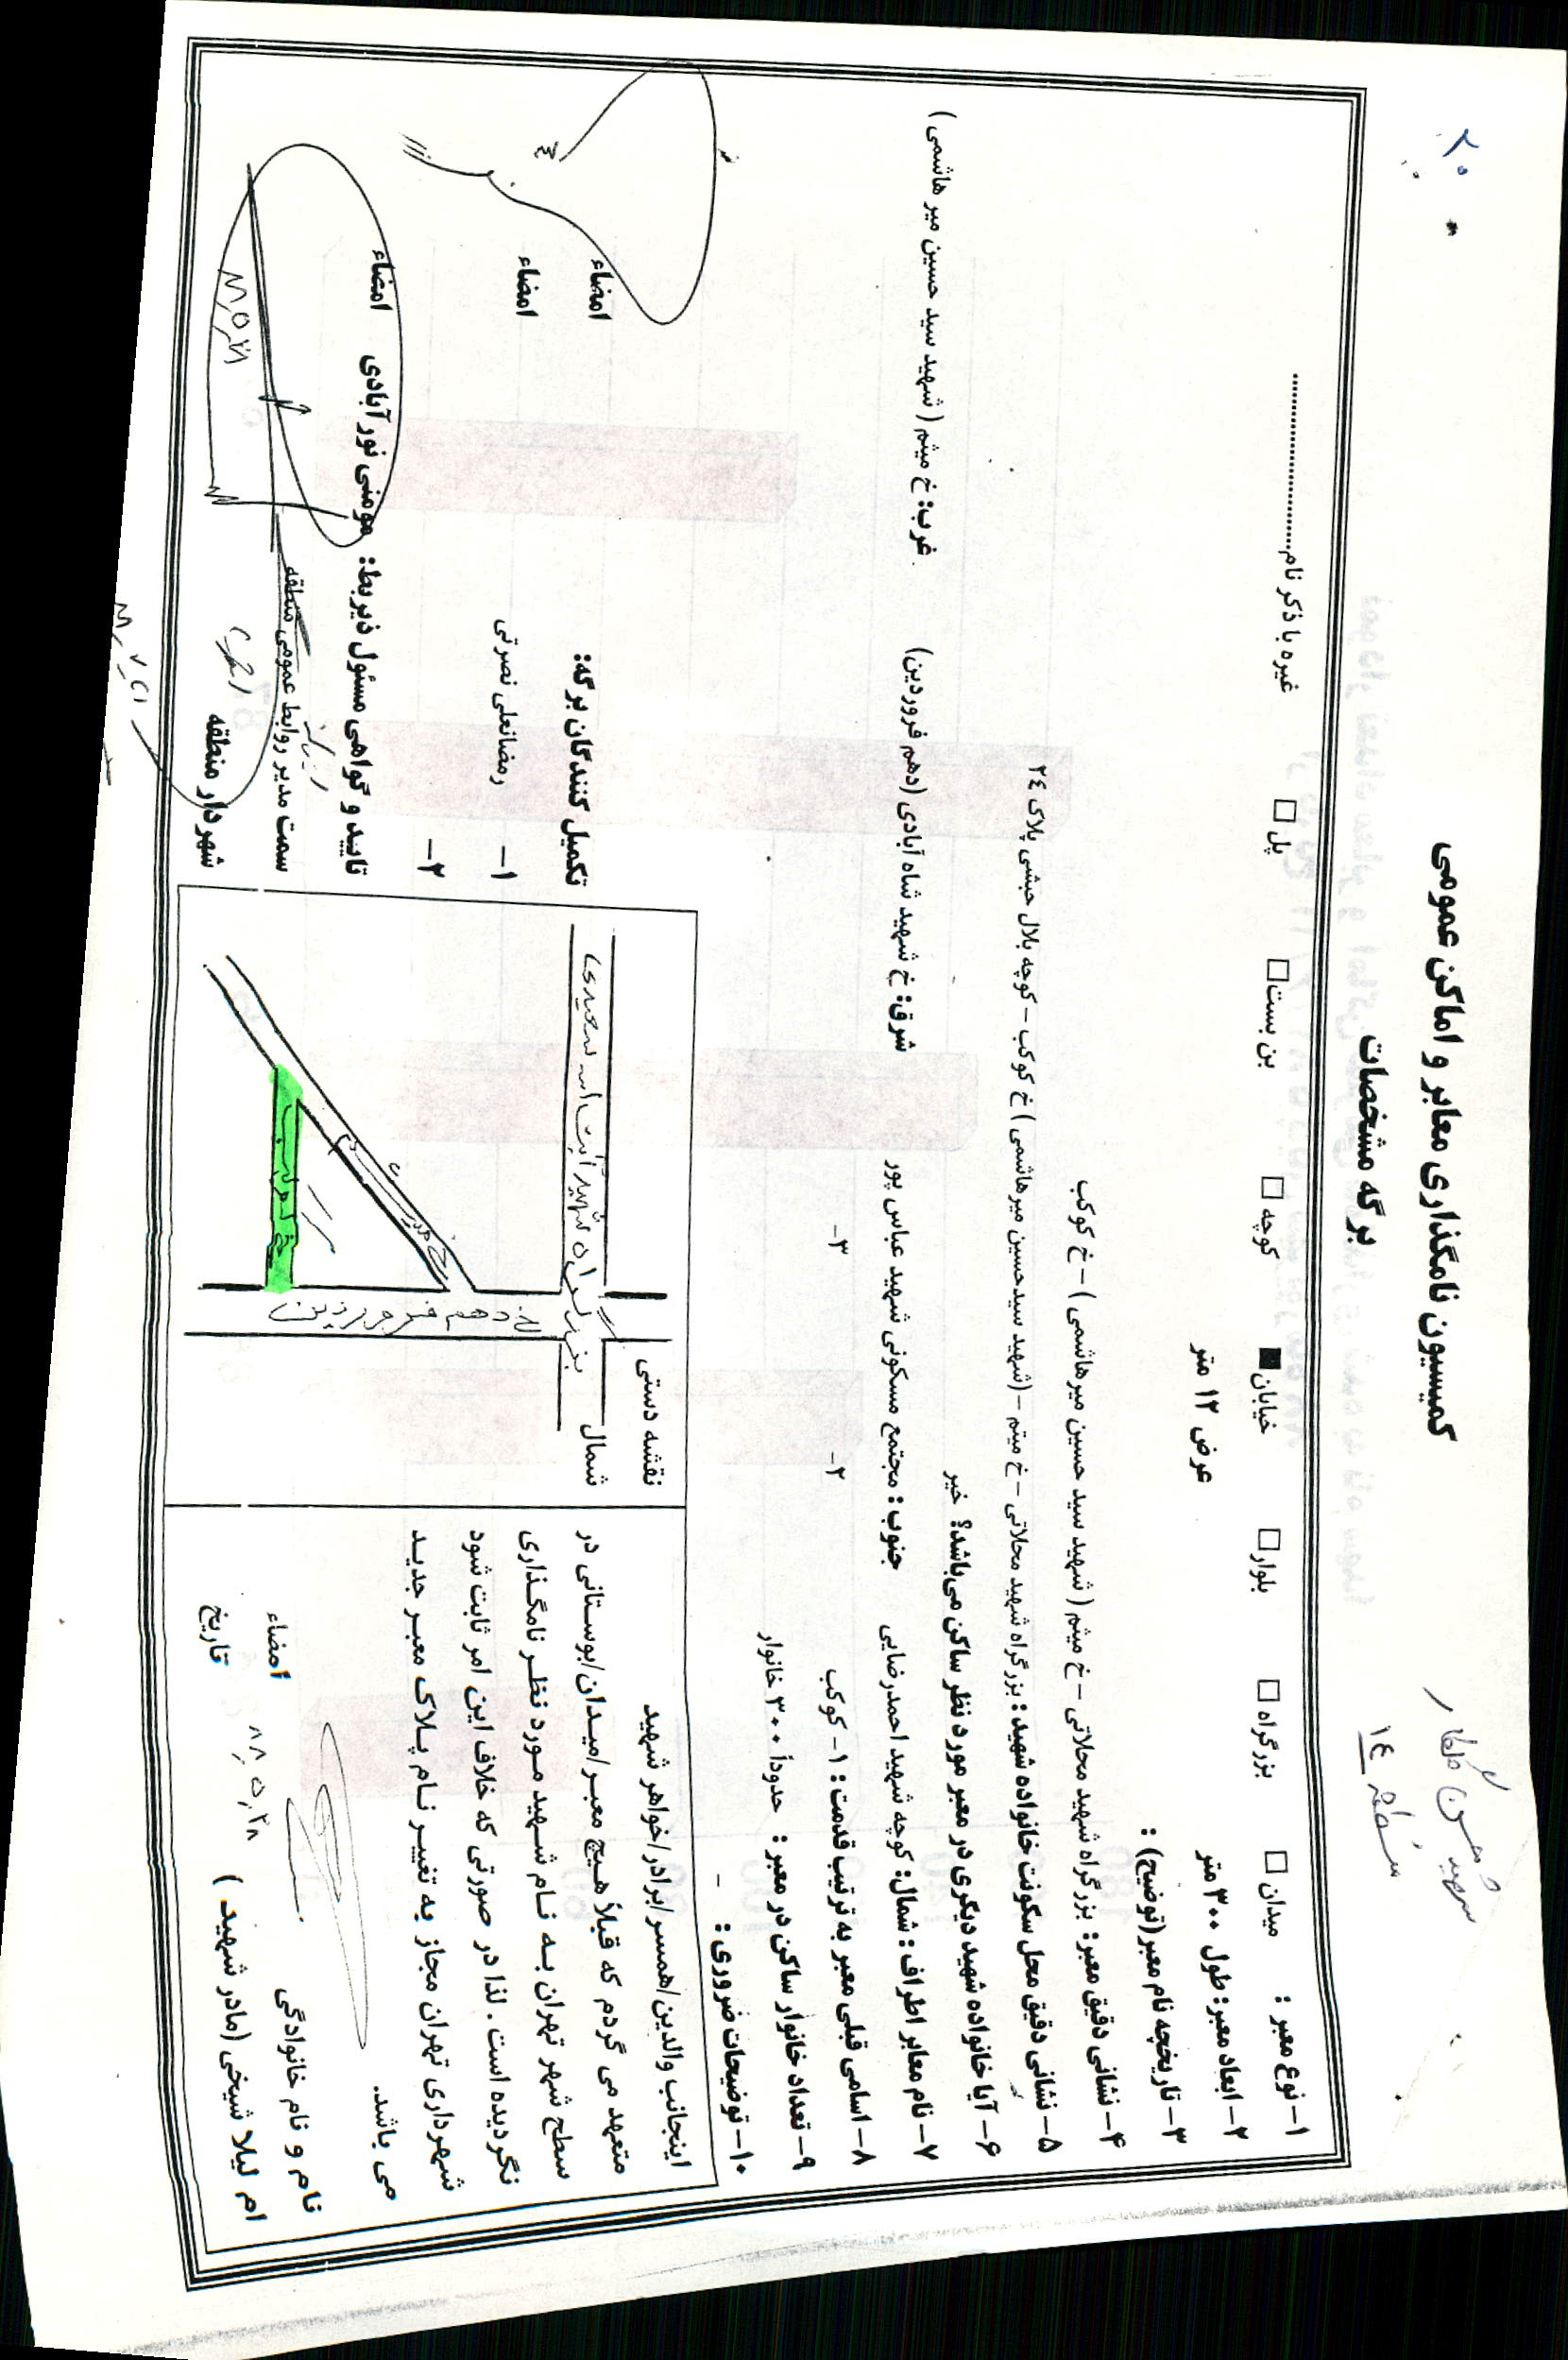 کمیسیون نامگذاری معابر و اماکن عمومی
برگه مشخصات
شهید
منطقه ١٤
۱- نوع معبر : میدان □ بزرگراه □ بلوار □ خیابان ■ کوچه □ بن بست □ پل □ غیره با ذکر نام..............................
۲- ابعاد معبر: طول ۳۰۰ متر عرض ۱۲ متر
۳- تاریخچه نام معبر(توضیح) :
۴- نشانی دقیق معبر: بزرگراه شهید محلاتی - خ میثم ( شهید سید حسین میرهاشمی ) - خ کوکب
۵- نشانی دقیق محل سکونت خانواده شهید : بزرگراه شهید محلاتی - خ میثم - (شهید سیدحسین میرهاشمی ) خ کوکب - کوچه بلال حبشی پلاک ٢٤
۶- آیا خانواده شهید دیگری در معبر مورد نظر ساکن می‌باشد؟ خیر
۷- نام معابر اطراف : شمال: کوچه شهید احمدرضایی جنوب : مجتمع مسکونی شهید عباس پور شرق: خ شهید شاه آبادی (دهم فروردین) غرب: خ میثم ( شهید سید حسین میر هاشمی )
۸- اسامی قبلی معبر به ترتیب قدمت : ۱- کوکب ۲- ۳-
۹- تعداد خانوار ساکن در معبر : حدوداً ۳۰۰ خانوار
۱۰- توضیحات ضروری : -
اینجانب والدین/همسر/برادر/خواهر شهید
متعهد می گردم که قبلاً هیچ معبر/میدان/بوستانی در
سطح شهر تهران به نام شهید مورد نظر نامگذاری
نگردیده است . لذا در صورتی که خلاف این امر ثابت شود
شهرداری تهران مجاز به تغییر نام پلاک معبر جدید
می باشد.
نام و نام خانوادگی امضاء
ام لیلا شیخی (مادر شهید ) تاریخ
۸۸٫۵٫۲۸
نقشه دستی
شمال
بزرگراه شهید آیت ا... سعیدی
خ دهم فروردین
خ میثم
خ کوکب
تکمیل کنندگان برگه: امضاء
۱- رمضانعلی نصرتی امضاء
۲-
تایید و گواهی مسئول ذیربط: مومنی نور آبادی امضاء
سمت مدیر روابط عمومی منطقه
شهردار منطقه